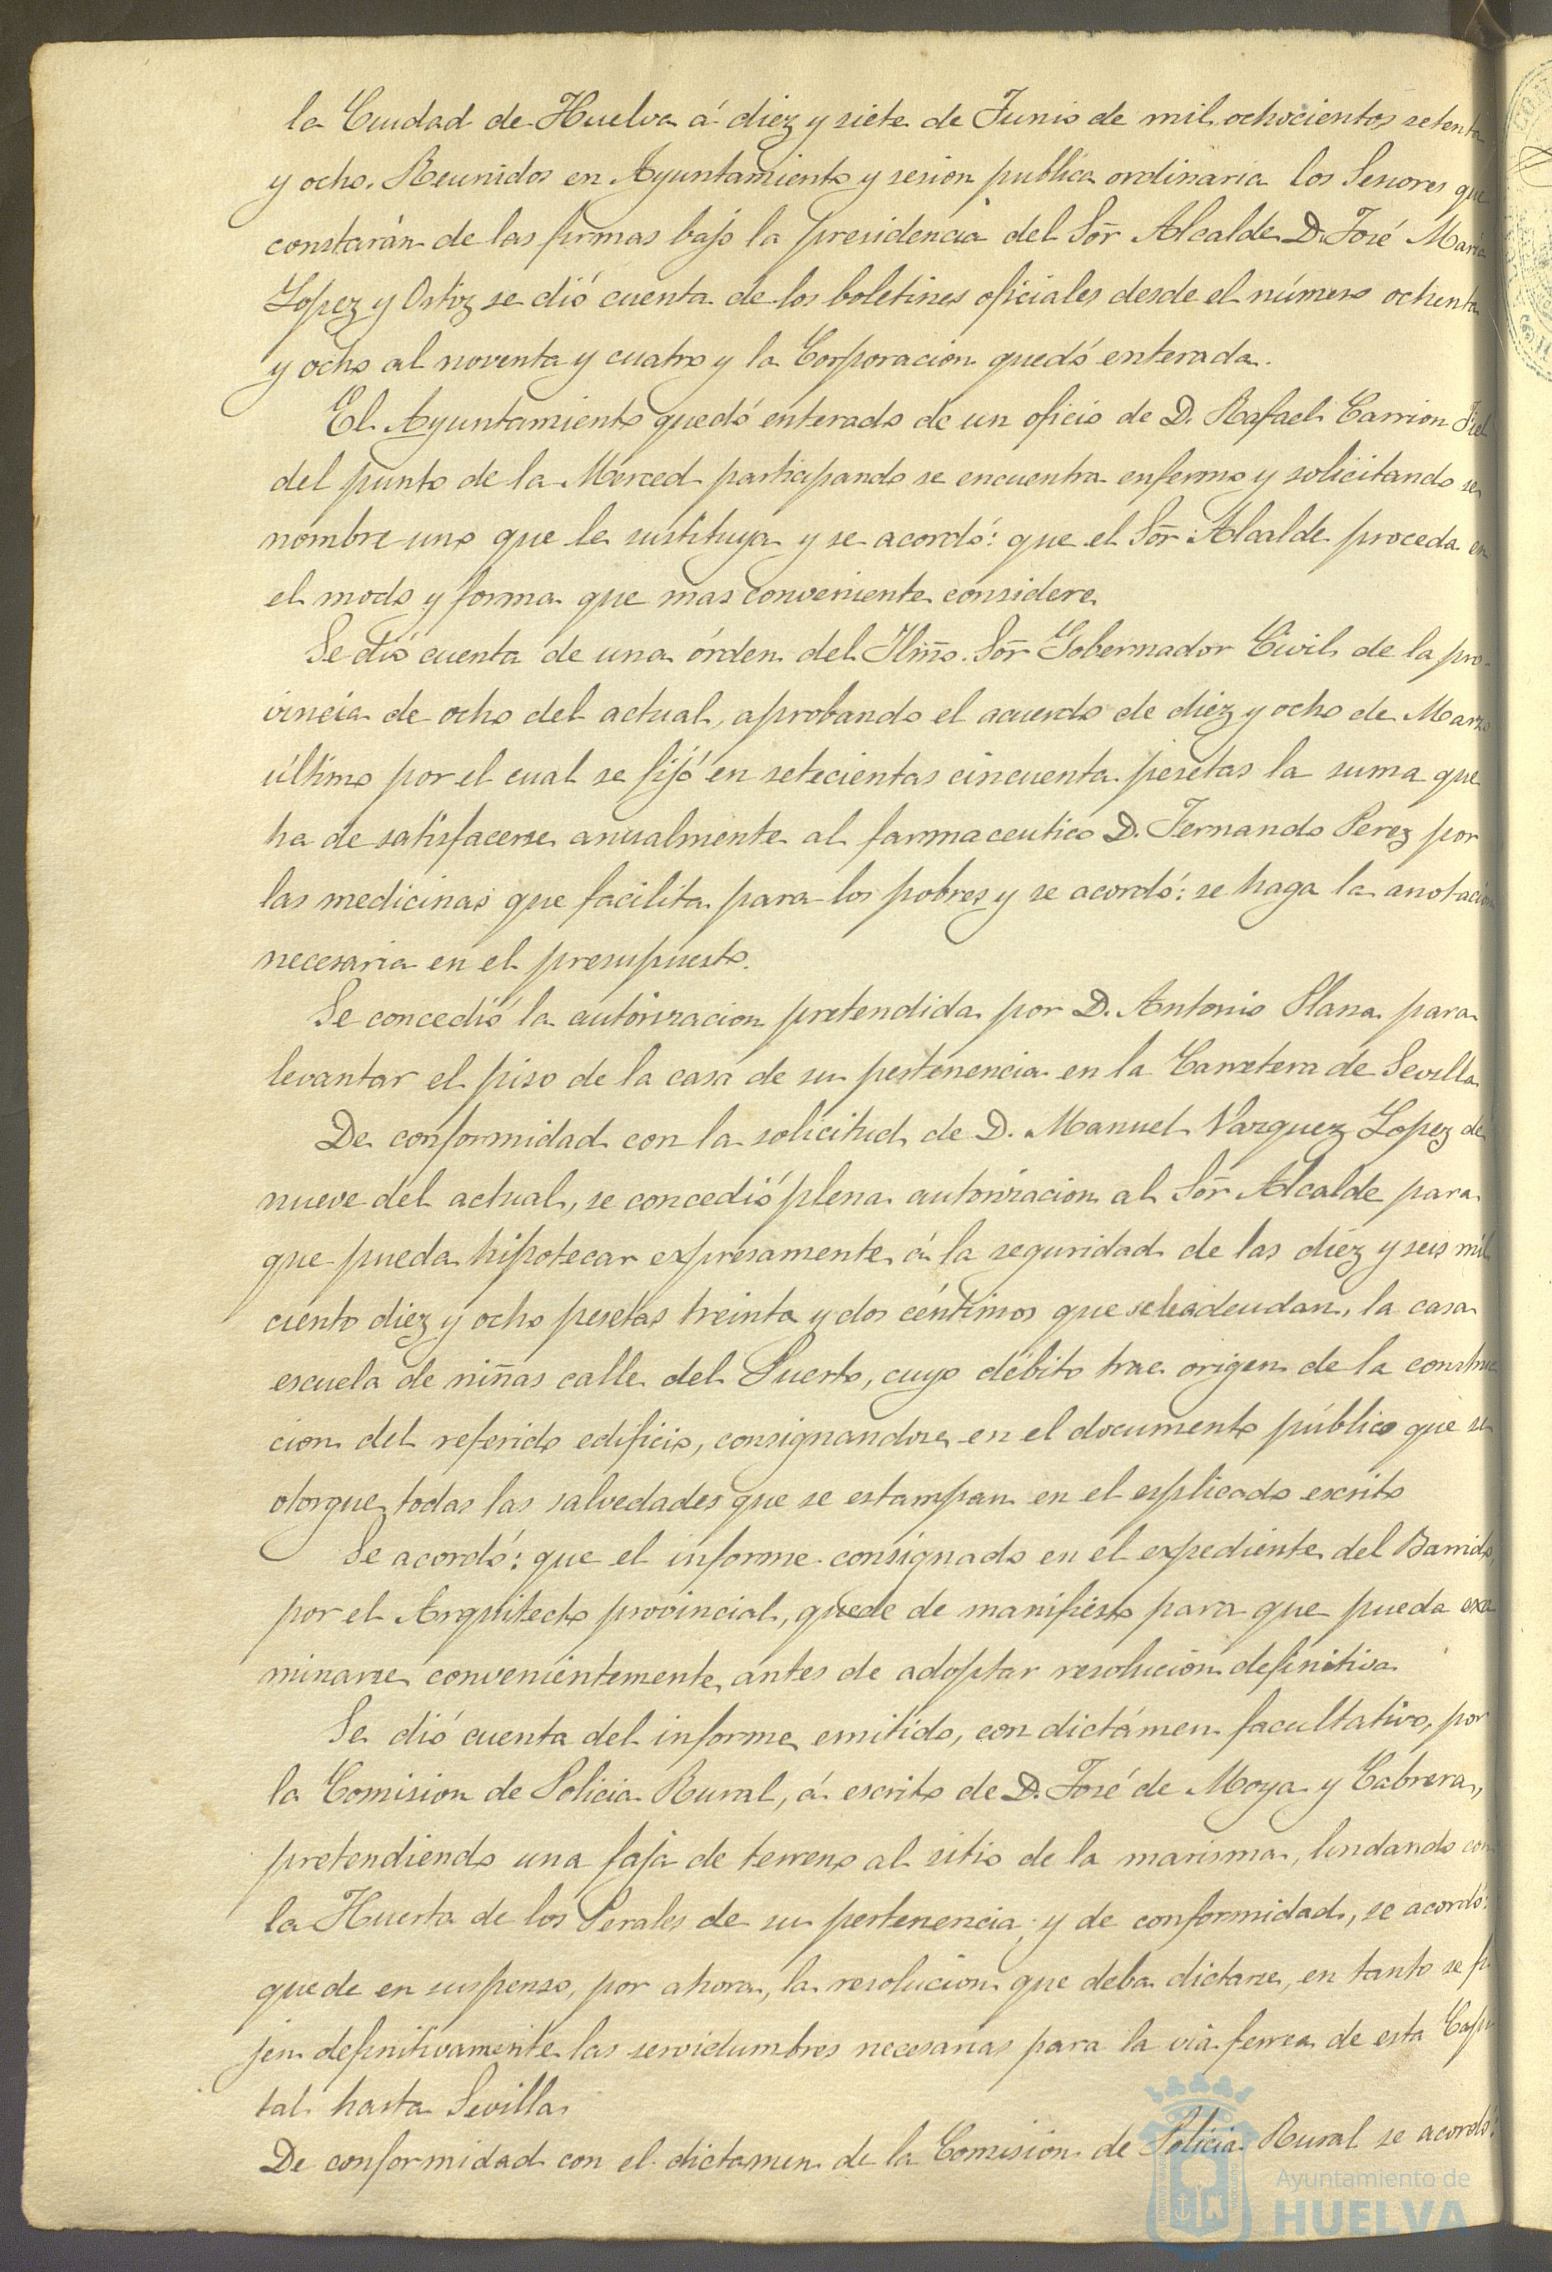 la Ciudad de Huelva á diez y siete de Junio de mil ochocientos setenta
y ocho. Reunidos en Ayuntamiento y sesion publica ordinaria los Señores que
constarán de las firmas bajo la presidencia del Sor̃ Alcalde D. José Maria
Lopez y Ortiz se dió cuenta de los boletines oficiales desde el número ochenta
y ocho al noventa y cuatro y la Corporacion quedó enterada.
El Ayuntamiento quedó enterado de un oficio de D. Rafael Carrion Fiel
del punto de la Merced participando se encuentra enfermo y solicitando se
nombre uno que le sustituya y se acordó: que el Sor̃ Alcalde proceda en
el modo y forma que mas conveniente considere
Se dió cuenta de una órden del Ilmo. Sor̃ Gobernador Civil de la pro-
vincia de ocho del actual, aprobando el acuerdo de diez y ocho de Marzo
último por el cual se fijó en setecientas cincuenta pesetas la suma que
ha de satisfacerse anualmente al farmaceutico D. Fernando Perez por
las medicinas que facilita para los pobres y se acordó: se haga la anotacion
necesaria en el presupuesto.
Se concedió la autorizacion pretendida por D. Antonio Plana para
levantar el piso de la casa de su pertenencia en la Carretera de Sevilla
De conformidad con la solicitud de D. Manuel Vazquez Lopez de
nueve del actual, se concedió plena autorizacion al Sor̃ Alcalde para
que pueda hipotecar expresamente á la seguridad de las diez y seis mil
ciento diez y ocho pesetas treinta y dos céntimos que se le adeudan, la casa
escuela de niñas calle del Puerto, cuyo débito trae origen de la construc
cion del referido edificio, consignandose en el documento público que se
otorgue todas las salvedades que se estampan en el esplicado escrito
Se acordó: que el informe consignado en el expediente del Barrido,
por el Arquitecto provincial, quede de manifiesto para que pueda exa
minarse convenientemente antes de adoptar resolucion definitiva
Se dió cuenta del informe emitido, con dictámen facultativo, por
la Comision de Policia Rural, á escrito de D. José de Moya y Cabrera,
pretendiendo una faja de terreno al sitio de la marisma, lindando con
la Huerta de los Perales de su pertenencia; y de conformidad, se acordó:
quede en suspenso, por ahora, la resolucion que deba dictarse, en tanto se fi
jen definitivamente las servidumbres necesarias para la via ferrea de esta Capi
tal hasta Sevilla
De conformidad con el dictamen de la Comision de Policia Rural se acordó:
Ayuntamiento de
HUELVA